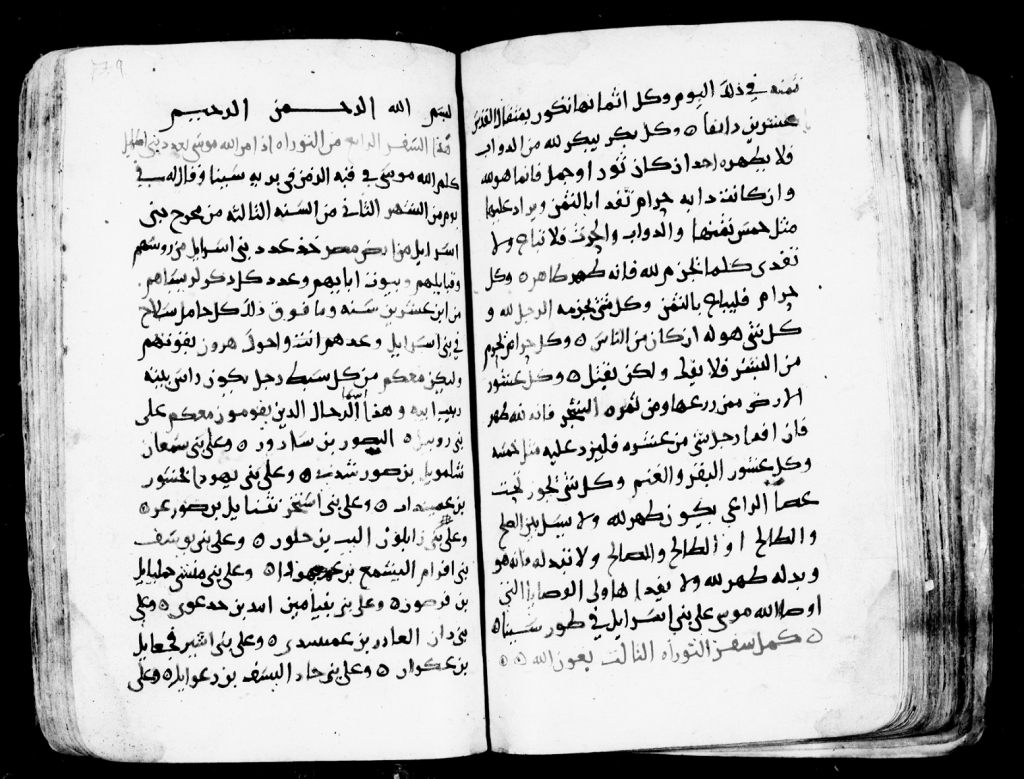 ثمنه في ذلك اليوم وكل اثمانها تكون بمثقال القدس
عشرين دانقا ۞ وكل بكر يبكر لله من الدواب
فلا يطهره احد ان كان ثورا او حمل فانما هو لله
وان كانت دابه حرام تفدا بالثمن ويزاد عليها
مثل خمس ثمنها والدواب والحرث فلا تباع ولا
تفدى كلما لحرم لله فانه طهر طاهر ۞ وكل
حرام فليباع بالثمن وكل شي يحرمه الرجل لله و
كل شي هو له ان كان من الناس ۞ وكل حرام لحرم
من البشر فلا يفدا ولكن يقتل ۞ وكل عشور
الارض ممن زرعها ومن ثمره الشجر فانه لله طهر
فان افدا رجل شي من عشوره فليزد عليه مثل خمسه
وكل عشور البقر والغنم وكل شي لجوز تحت
عصا الراعي يكون طهر لله ولا يبدل بين الصالح
والطالح او الطالح والصالح ولا تبدله فانه هو
وبدله طهر لله ولا يفدا هاولى الوصايا التي
اوصا الله موسى على بني اسرايل في طور سينا ۞
۞ كمل سفر التوراه الثالث بعون الله ۞ ۞
١٣٩
بسم الله الرحمن الرحيم
هذا السفر الرابع من التوراه اذ امر الله موسى بعدد بني اسرايل
كلم الله موسى في قبه الزمن في بريه سينا وقال له في
يوم من الشهر الثاني من السنه الثالثه من مخرج بني
اسرايل من ارض مصر خذ عدد بني اسرايل من روسهم
وقبايلهم وبيوت ابايهم وعدد كل ذكر لروساهم
من ابن عشرين سنه وما فوق ذلك كل حامل سلاح
في بني اسرايل وعدهم انت واخوك هرون بقوتهم
وليكن معكم من كل سبط رجل يكون راس بيته
وبيت ابيه وهذا اسما الرجال الذين يقومون معكم على
بني روبيل ۞ اليصور بن ساداور ۞ وعلى بني سمعان
شلمويل بن صور شدى ۞ وعلى بني يهودا نحشور
بن عميناداب ۞ وعلى بني اسخر نثنايل بن صوعر ۞
وعلى بني زابلون الياب بن حلون ۞ وعلى بني يوسف
بني افرام اليشمع بن عميهودا ۞ وعلى بني منشى جمليايل
بن فرصور ۞ وعلى بني بنيامين ابيد بن جدعوى ۞ وعلى
بني دان العادر بن عميسدى ۞ وعلى بني اشير فجعايل
بن عكران ۞ وعلى بني جاد اليسف بن دعوايل ۞ وعلى